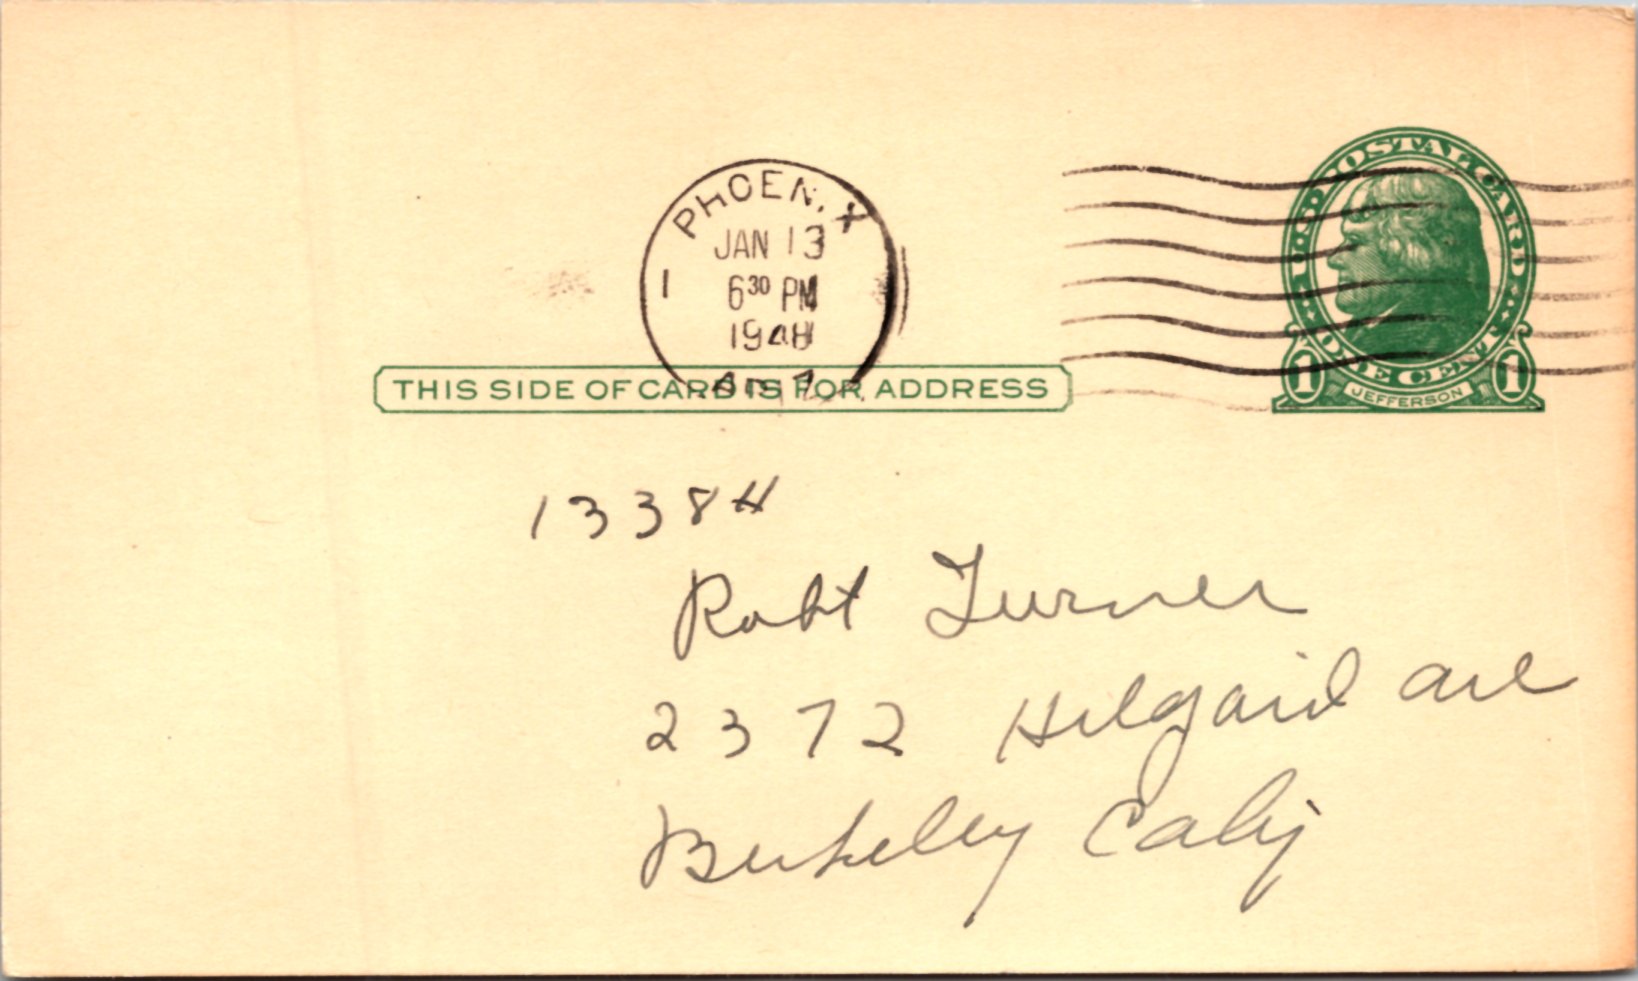 U.S. POSTAL CARD
PHOENIX
JAN 13
1
6 30 PM
1948
ARIZ.
ONE CENT
1 JEFFERSON 1
THIS SIDE OF CARD IS FOR ADDRESS
13384
Robt Turner
2372 Hilgard ave
Berkeley Calif